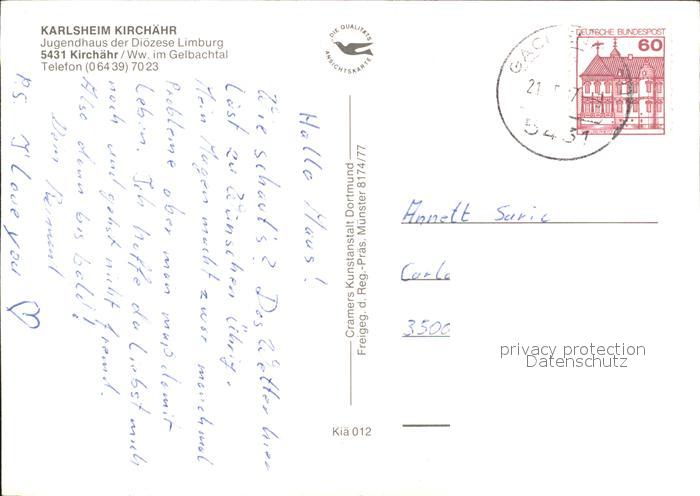 KARLSHEIM KIRCHÄHR
Jugendhaus der Diözese Limburg
5431 Kirchähr / Ww. im Gelbachtal
Telefon (0 64 39) 70 23
DIE QUALITÄTS
ANSICHTSKARTE
DEUTSCHE BUNDESPOST
60
21
5431
Hallo Maus!
Wie schaut's? Das Wetter hier
läst zu Wünschen übrig.
Mein Magen macht zwar manchmal
Probleme aber man muß damit
Leben. Ich hoffe du Liebst mich
noch und gehst nicht fremd.
Also dann bis bald!
Dein
PS I love you ♡
Cramers Kunstanstalt Dortmund
Freigeg. d. Reg.-Präs. Münster 8174/77
Kiä 012
Annett
Carl
3500
privacy protection
Datenschutz